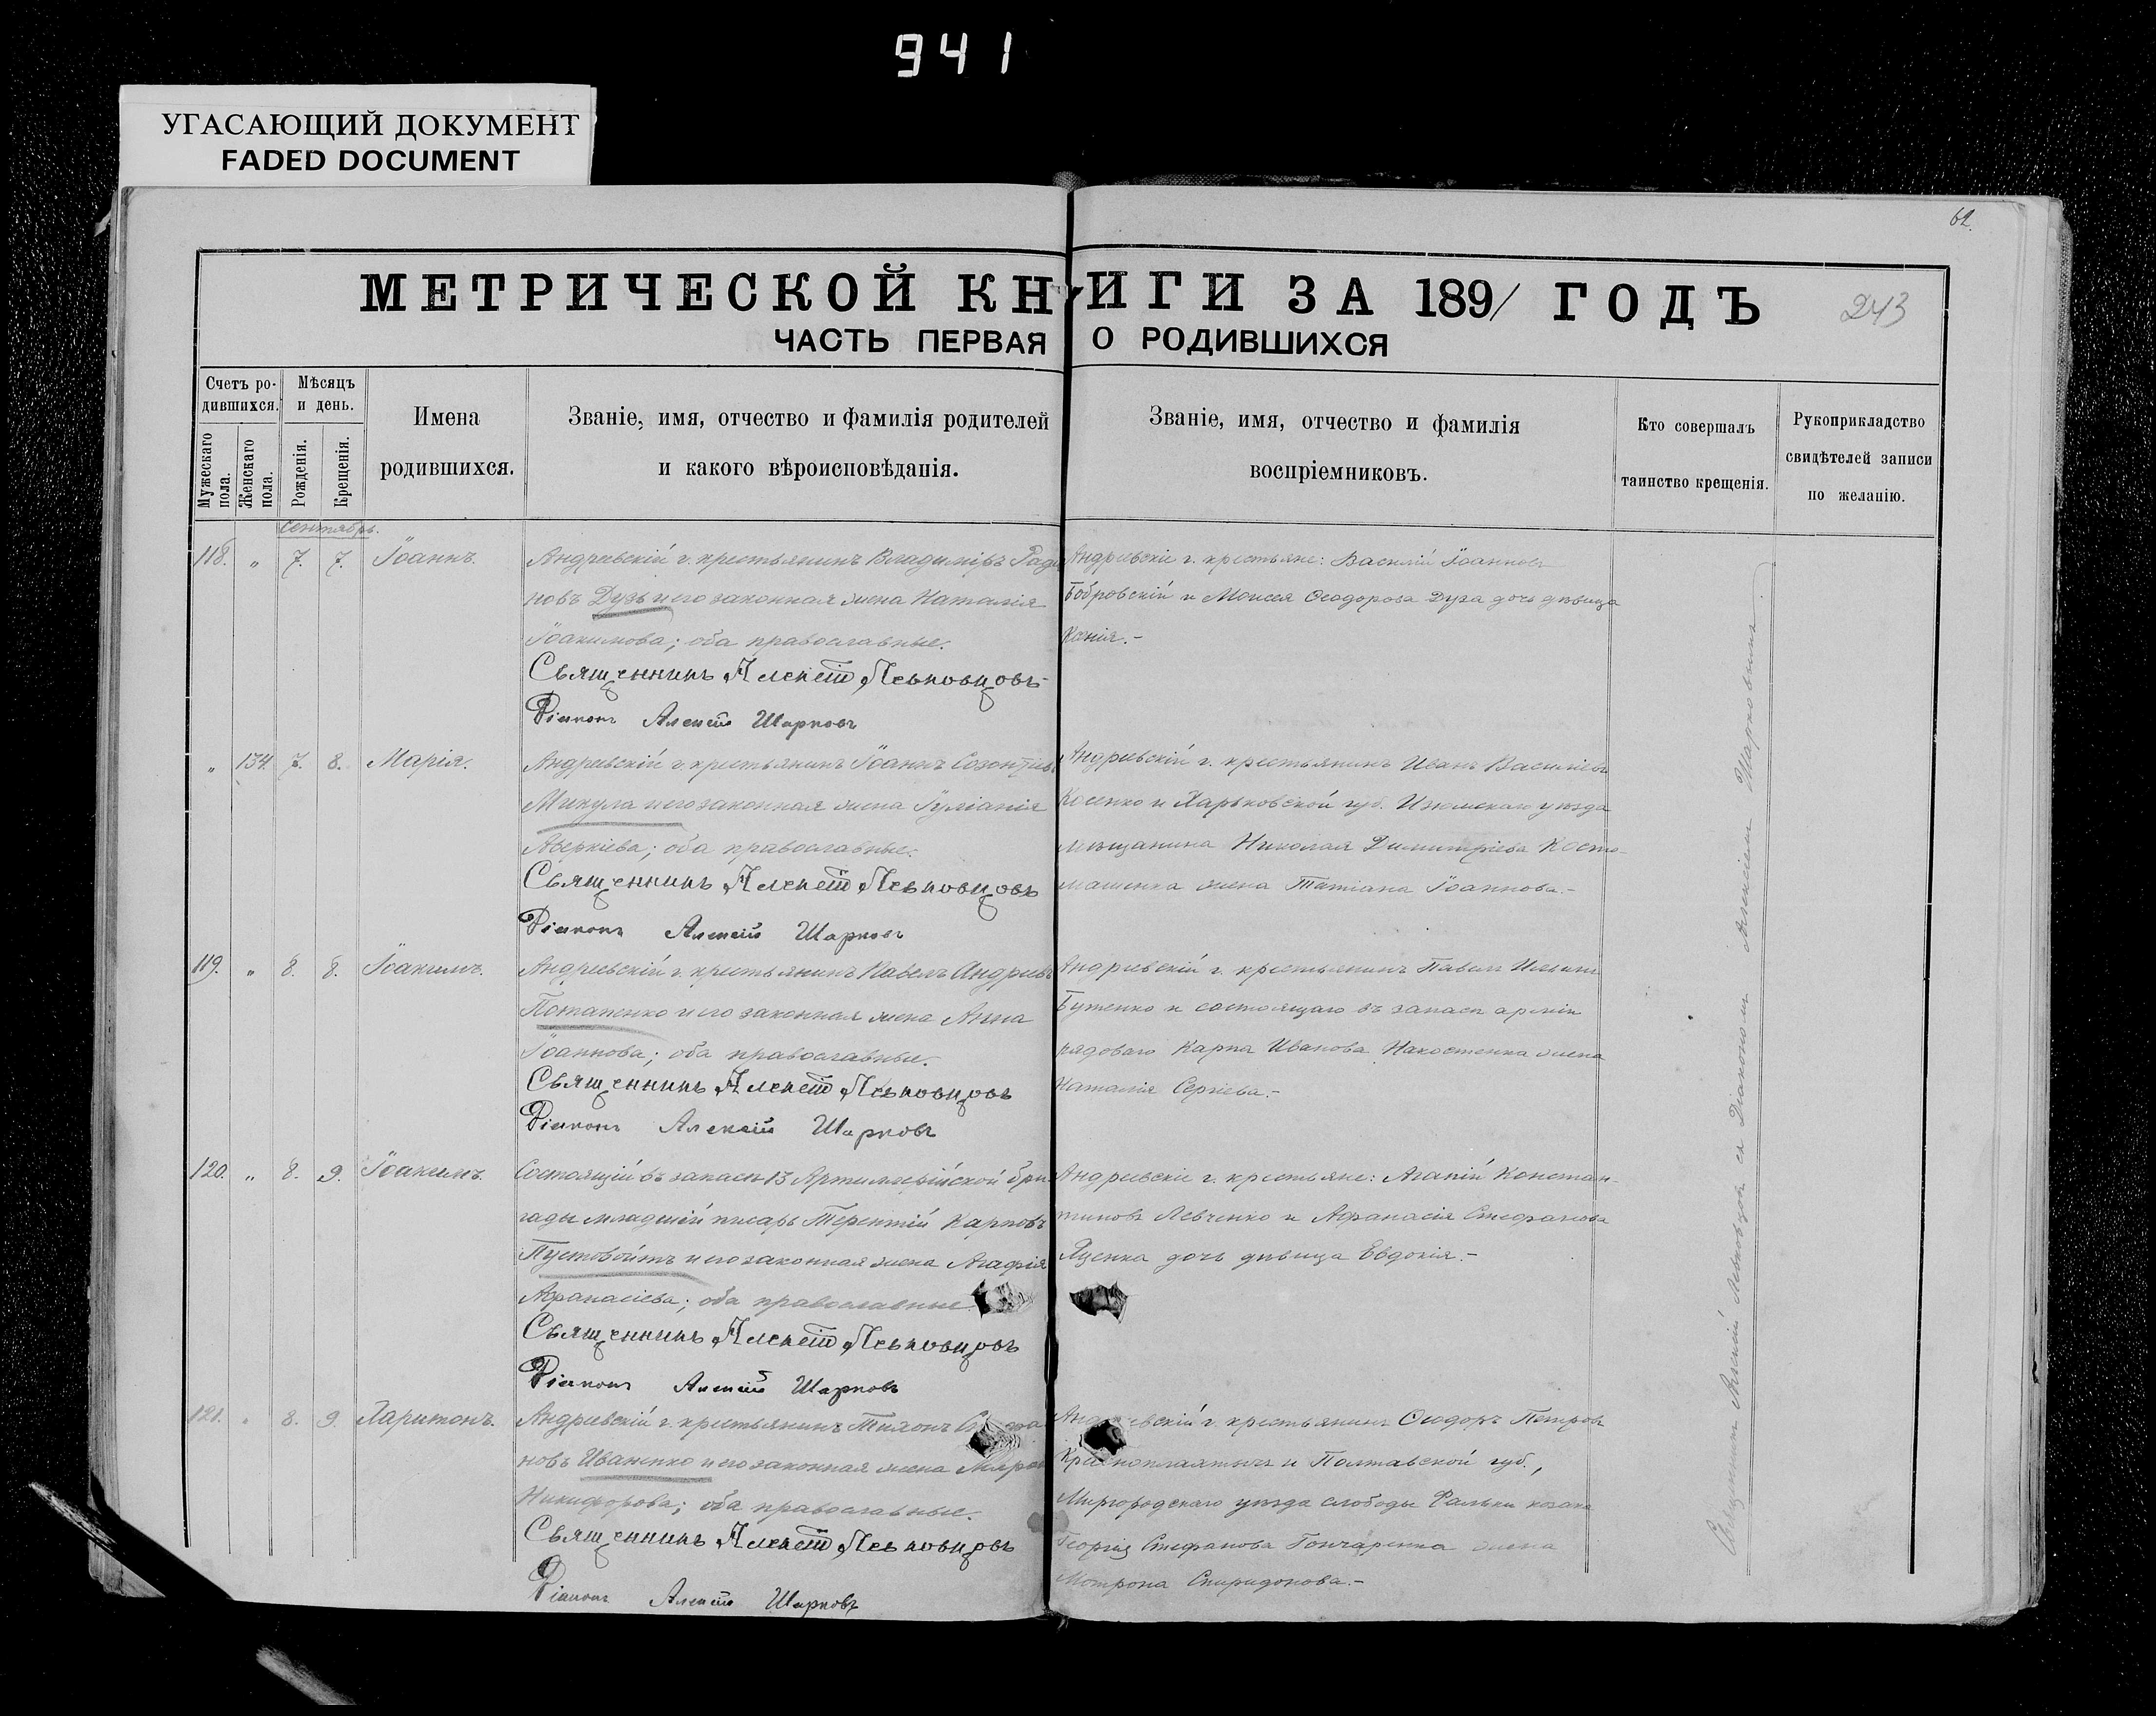 941
УГАСАЮЩИЙ ДОКУМЕНТ
FADED DOCUMENT
62.
МЕТРИЧЕСКОЙ КНИГИ ЗА 1891 ГОДЪ
243
ЧАСТЬ ПЕРВАЯ О РОДИВШИХСЯ
Счетъ ро-
дившихся.
Мужескаго пола.
Женскаго пола.
Мѣсяцъ
и день.
Рожденія.
Крещенія.
Имена
родившихся.
Званіе, имя, отчество и фамилія родителей
и какого вѣроисповѣданія.
Званіе, имя, отчество и фамилія
воспріемниковъ.
Кто совершалъ
таинство крещенія.
Рукоприкладство
свидѣтелей записи
по желанію.
Сентябрь.
118. " 7. 7. Іоаннъ.
Андреевскій г. крестьянинъ Владиміръ
новъ Дузь и его законная жена Наталія
Іоакимова; оба православные.
Священникъ Алексій Левковцовъ
Діаконъ Алексій Шарковъ
Андреевскіе г. крестьяне: Василій Іоанновъ
Бобровскій и Моисея Ѳеодорова Дуза дочь дѣвица
Ксенія.-
" 134. 7. 8. Марія.
Андреевскій г. крестьянинъ Іоаннъ Созонтіевъ
Микула и его законная жена Іуліанія
Аверкіева; оба православные.
Священникъ Алексій Левковцовъ
Діаконъ Алексій Шарковъ
Андреевскій г. крестьянинъ Иванъ Василіевъ
Косенко и Харьковской губ. Изюмскаго уѣзда
мѣщанина Николая Димитріева Косто-
машенка жена Татіана Іоаннова.-
119. " 8. 8. Іоакимъ.
Андреевскій г. крестьянинъ Павелъ Андреевъ
Потапенко и его законная жена Анна
Іоаннова; оба православные.
Священникъ Алексій Левковцовъ
Діаконъ Алексій Шарковъ
Андреевскій г. крестьянинъ Павелъ Ильинъ
Бутенко и состоящаго въ запасѣ арміи
рядоваго Карпа Иванова жена
Наталія Сергіева.-
120. " 8. 9. Іоакимъ.
Состоящій въ запасѣ 13 Артиллерійской бри-
гады младшій писарь Терентій Карповъ
Пустовойтъ и его законная жена Агафія
Афанасіева; оба православные.
Священникъ Алексій Левковцовъ
Діаконъ Алексій Шарковъ
Андреевскіе г. крестьяне: Агапій Констан-
тиновъ Левченко и Афанасія Стефанова
Яценка дочь дѣвица Евдокія.-
121. " 8. 9. Харитонъ.
Андреевскій г. крестьянинъ Тихонъ
новъ Иваненко и его законная жена
Никифорова; оба православные.
Священникъ Алексій Левковцовъ
Діаконъ Алексій Шарковъ
Андреевскій г. крестьянинъ Ѳеодоръ Петровъ
и Полтавской губ.,
Миргородскаго уѣзда слободы казака
Георгія Стефанова Гончаренка жена
Мотрона Спиридонова.-
Священникъ Алексій Левковцовъ съ Діакономъ Алексіемъ Шарковымъ.